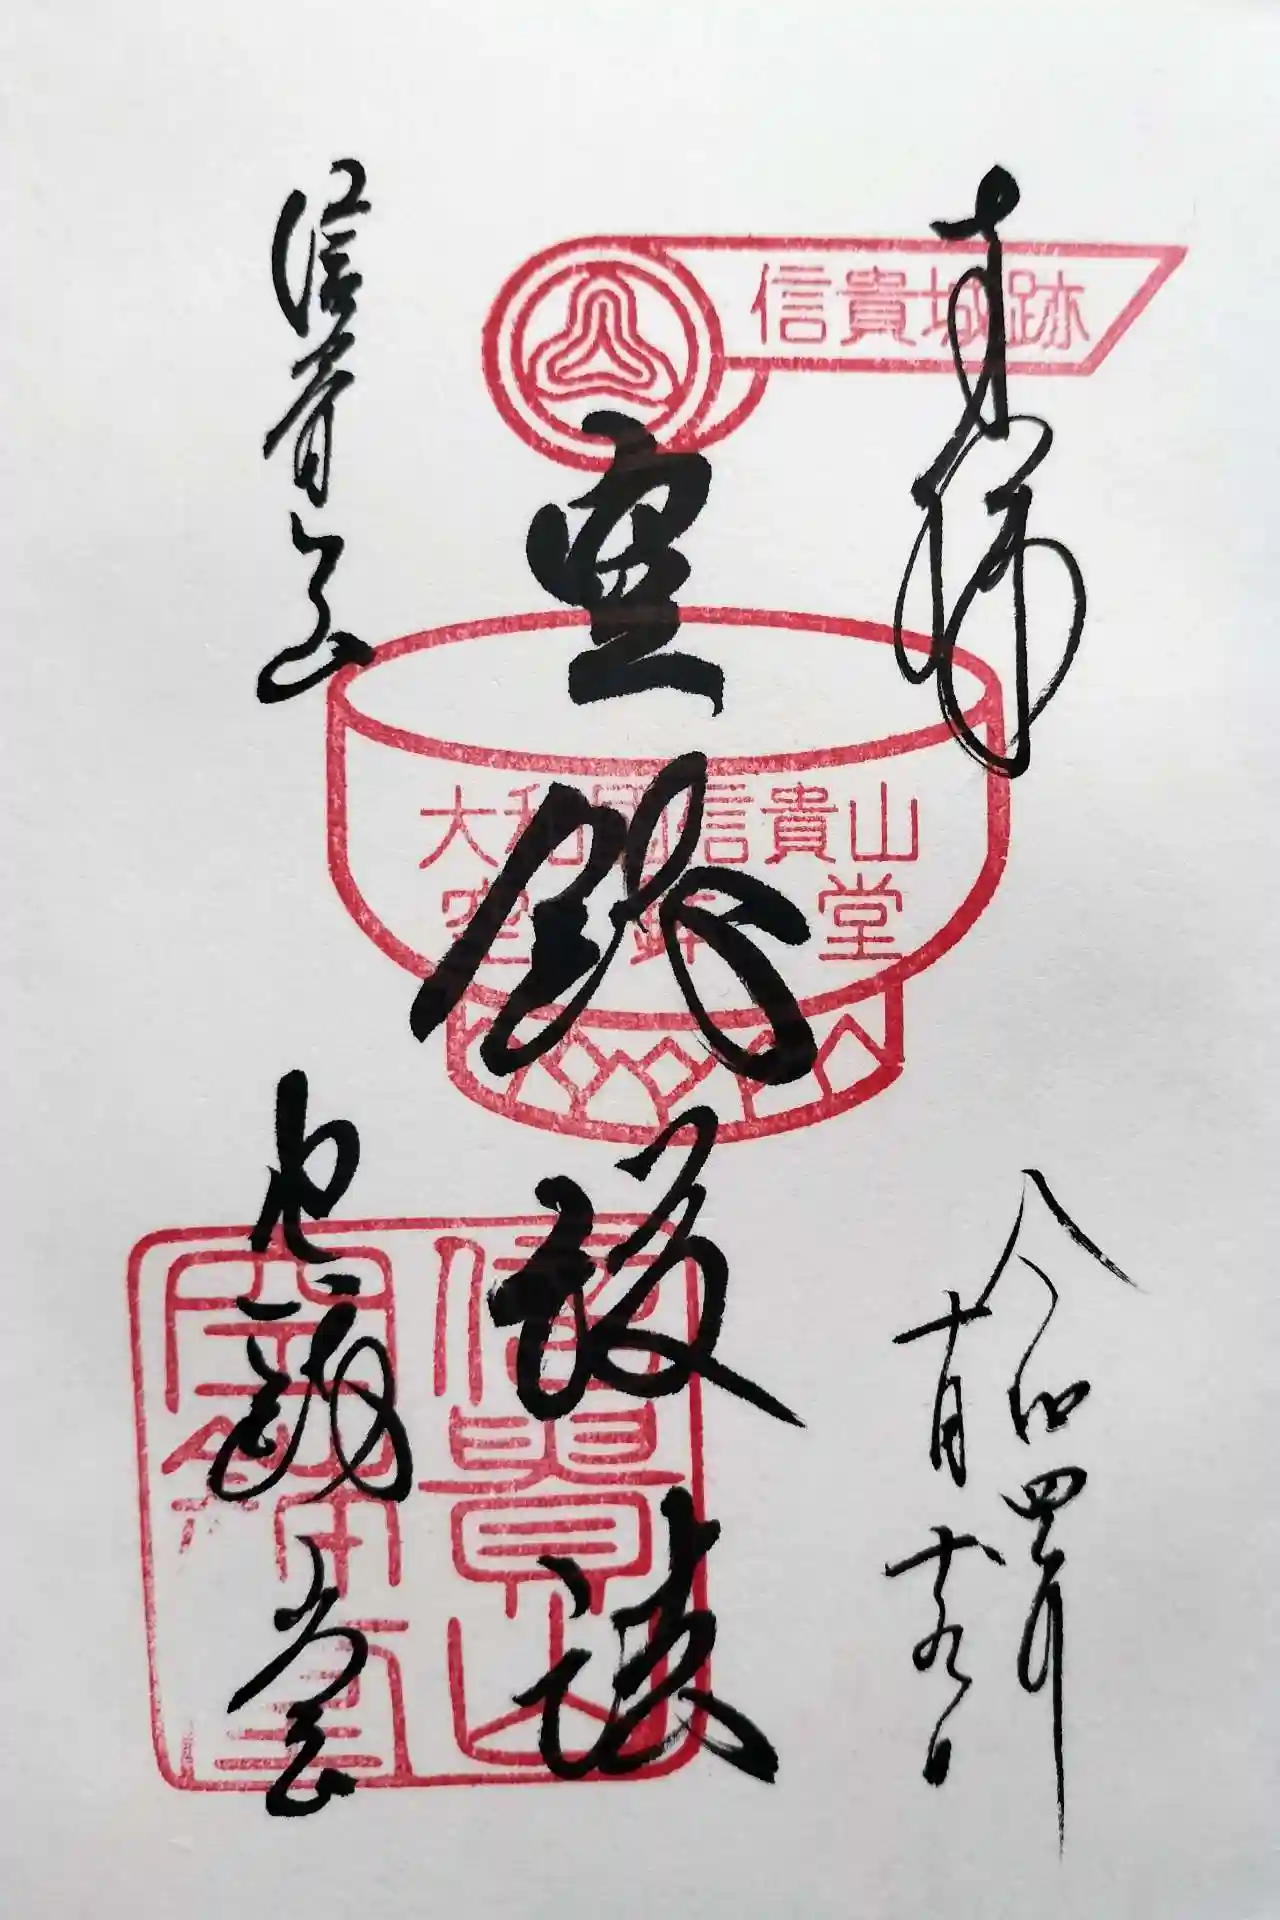 奉拝
令和四年
十月
信貴城跡
空鉢護法
大和國信貴山
空鉢堂
信貴山
空鉢堂
信貴山
空鉢堂